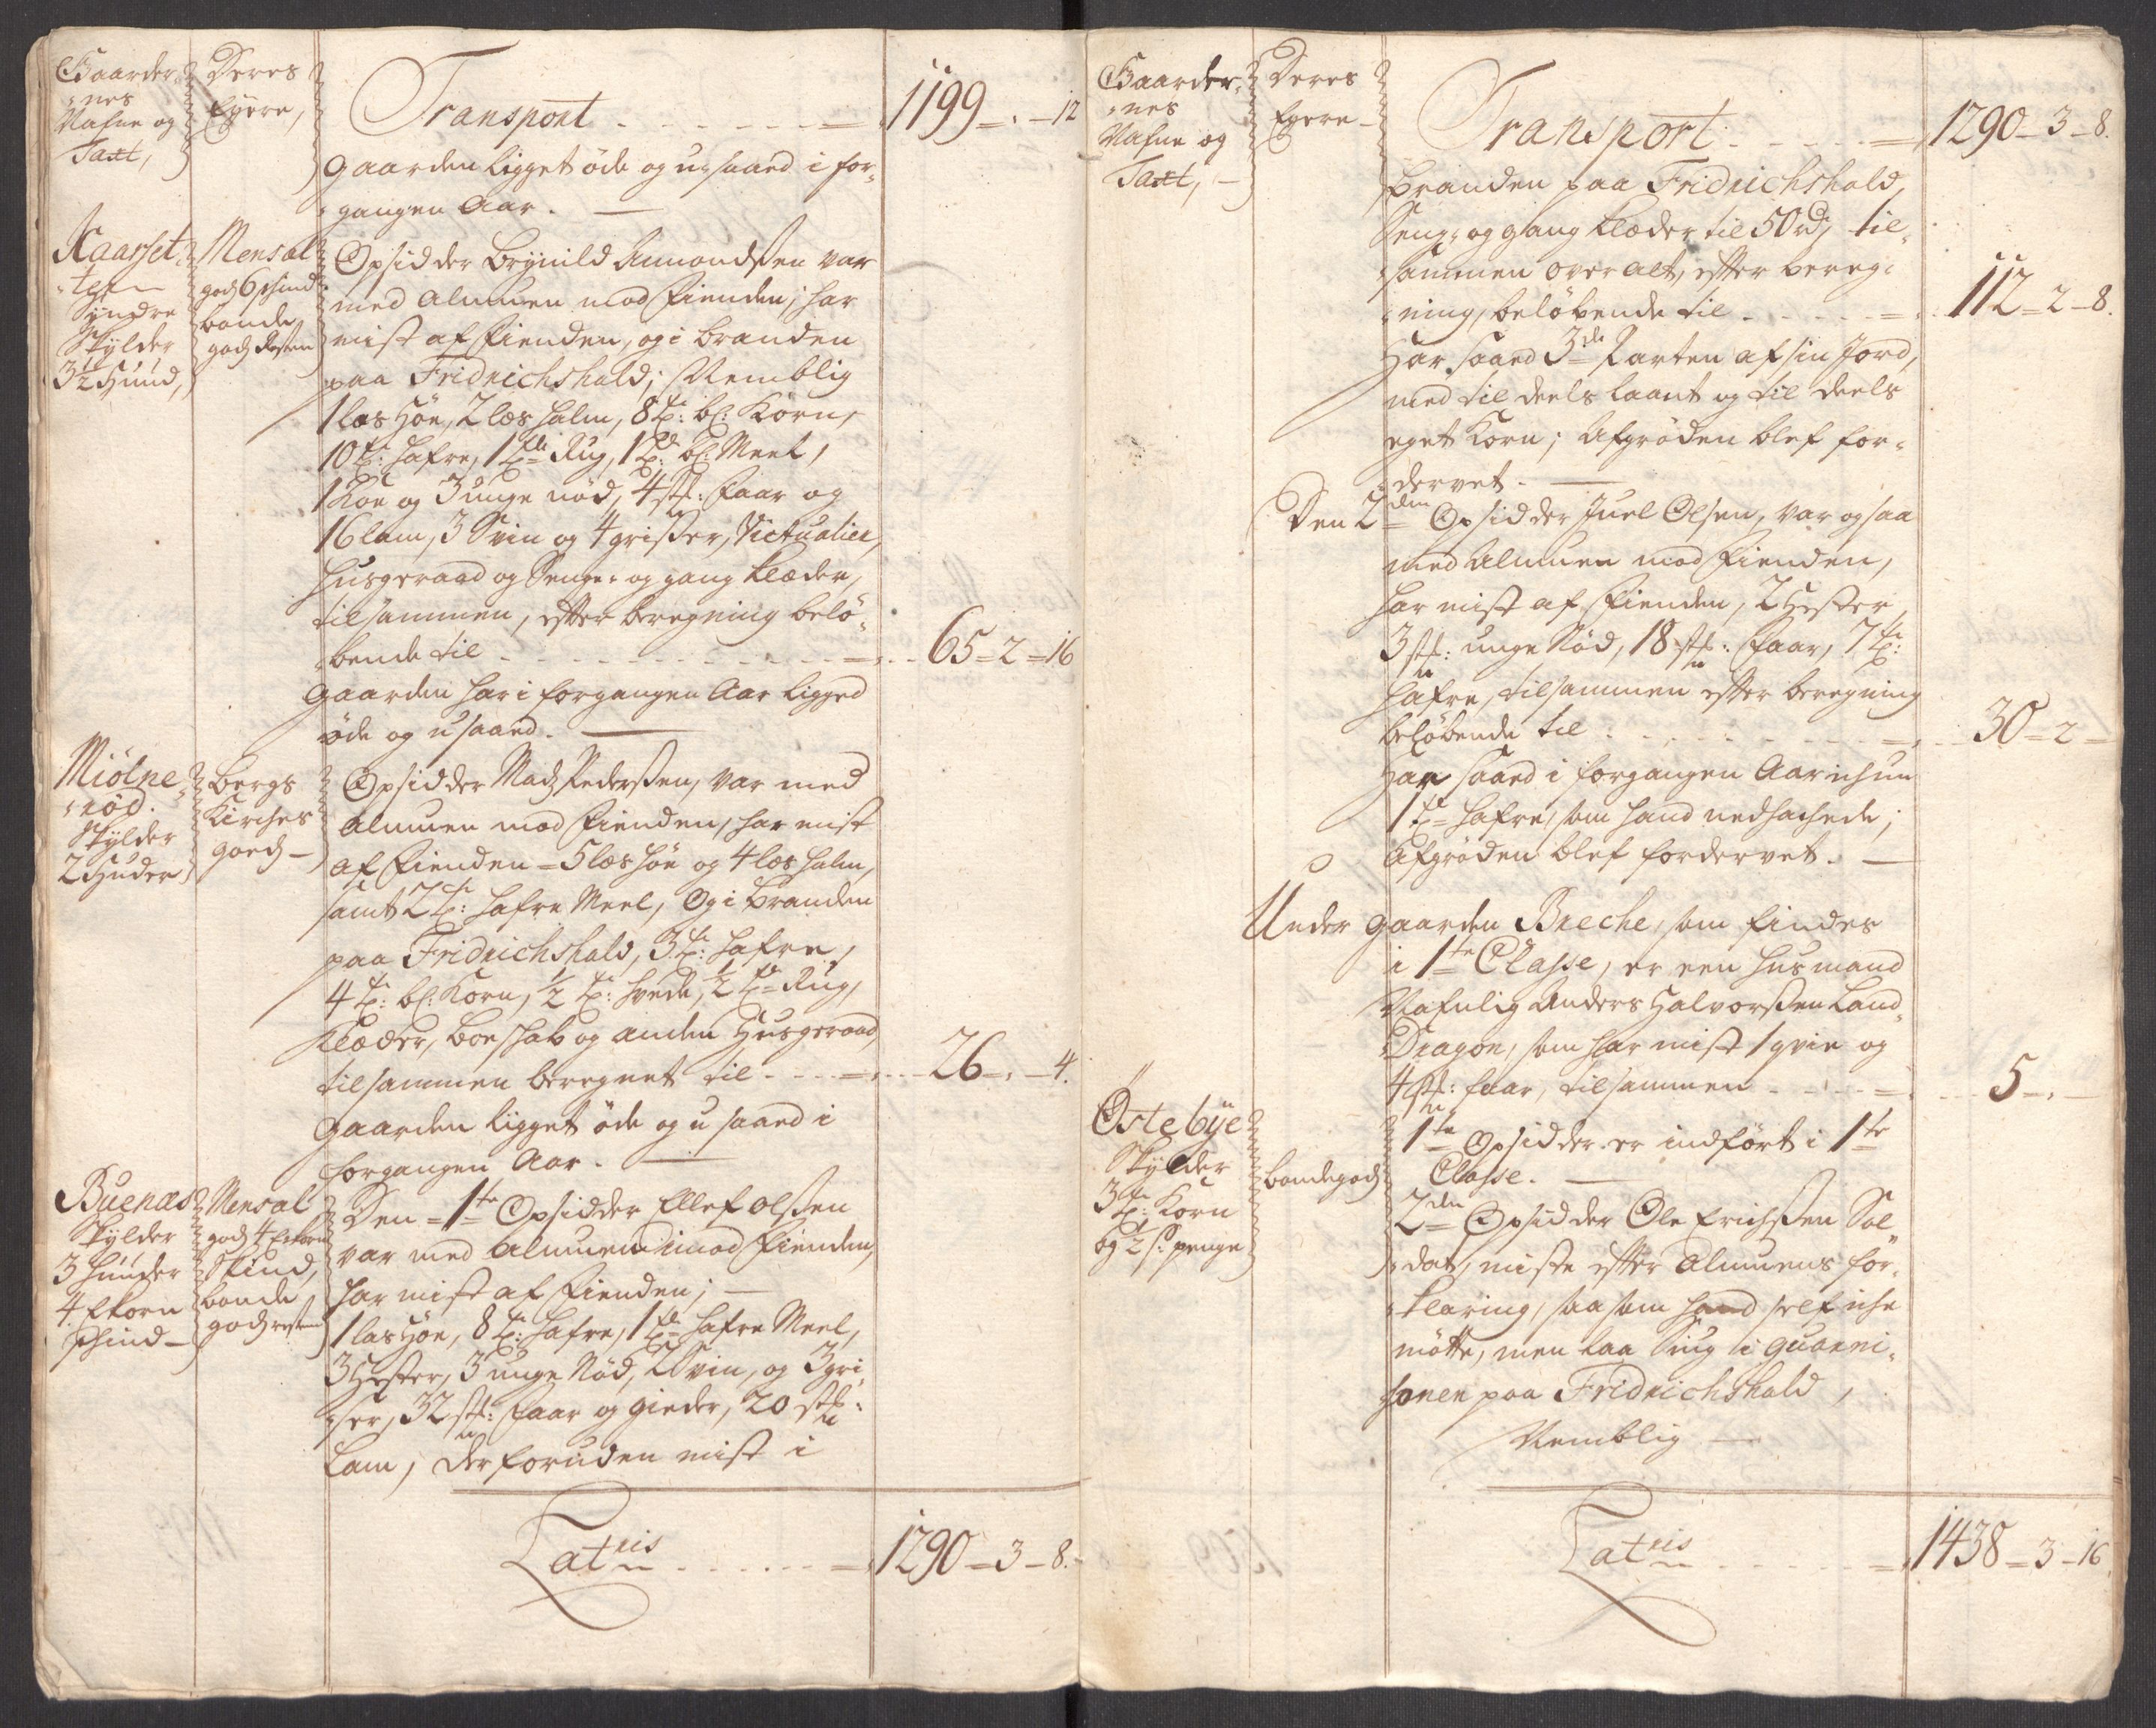 Gaarder-
nes
Nafne og
Taxt,
Deres
Eyere,
Transport - - - - - - 1199 - . - 12
gaarden ligget øde og u-saaed i for-
gangen Aar. —
Kaarset-
ten
Syndre
Skylder
3½ Huud,
Mensal
godz 6 skind
bonde
godz Resten
Opsidder Brynild Amondssen var
med Almuen mod Fienden, har
mist af Fienden, og i branden
paa Fridrichshald; Nemblig
1 las Høe, 2 læs halm, 8 tr: bl: Korn,
10 tr: hafre, 1 tde Rug, 1 td: bl: Meel,
1 Koe og 3 unge nød, 4 stk: Faar og
16 lam, 3 Svin og 4 grisser, Victualier,
Husgeraad og Senge- og gang klæder,
tilsammen, efter beregning belø-
bende til - - - - - - 65 - 2 - 16
gaarden har i forgangen Aar ligged
øde og usaaed. —
Miølne-
rød.
Skylder
2 Huder
bergs
Kirches
goedz —
Opsidder Madz Pederssen, var med
Almuen mod Fienden, har mist
af Fienden - 5 læs høe og 4 læs halm,
samt 2 tr: hafre Meel, Og i Branden
paa Fridrichshald, 3 tr: hafre,
4 tr: bl: Korn, ½ tr: hvede, ½ td Rug,
Klæder, boeskab og anden Husgeraad
tilsammen beregnet til - - - 26 - . - 4.
Gaarden ligget øde og u saaed i
forgangen Aar. —
Buenæs
Skylder
3 huuder
4 Ekorn
skind —
Mensal
godz 4 Ekorn
Skind,
bonde
godz resten
Den - 1te Opsidder Ellef Olssen
var med Almuen imod Fienden,
har mist af Fienden; —
1 las Høe, 8 tr: hafre, 1 td hafre Meel,
3 Hester, 3 unge Nød, 2 Svin, og 3 gri-
ser, 32 stk: Faar og gieder, 20 stk:
Lam, derforuden mist i
Latris - - - - - - 1290 - 3 - 8.
Gaarder-
nes
Nafne og
Taxt, —
Deres
Eyere —
Transport - - - - - 1290 - 3 - 8.
branden paa Fridrichshald,
Seng- og gang klæder til 50 rdr til-
sammen over alt, efter bereg-
ning, beløbende til - - - - - 112 - 2 - 8.
Har saaed 3de Parten af sin Jord,
med til deels laant og til deels
eget Korn; Afgrøden blef for-
dervet. —
Den 2den Opsidder Juel Olsen, var og saa
med Almuen mod Fienden,
har mist af Fienden, 2 Hester
3 stk: unge Nød, 18 stk: Faar, 7 tr:
hafre, tilsammen efter beregning
beløbende til - - - - - - 30 - 2 -
Har saaed i forgangen Aar ichun
1 td hafre, som hand nedhachede;
Afgrøden blef fordervet. —
Under gaarden Breche, som findes
i 1te Classe, er een Husmand
Nafnlig Anders Halvorssen Land
Dragon, som har mist 1 qvie og
4 stk: faar, tilsammen - - - - 5 - . -
Østebye
Skylder
3 tr: Korn
og 2 s: penge
bondegodz
1te Opsidder er indført i 1te
Classe. —
2den Opsidder Ole Erichssen Sol-
dat, miste efter Almuens for-
klaring, saasom hand self iche
møtte, men laa siug i guarni-
sonen paa Fridrichshald,
Nemblig —
Latris - - - - - - 1438 - 3 - 16